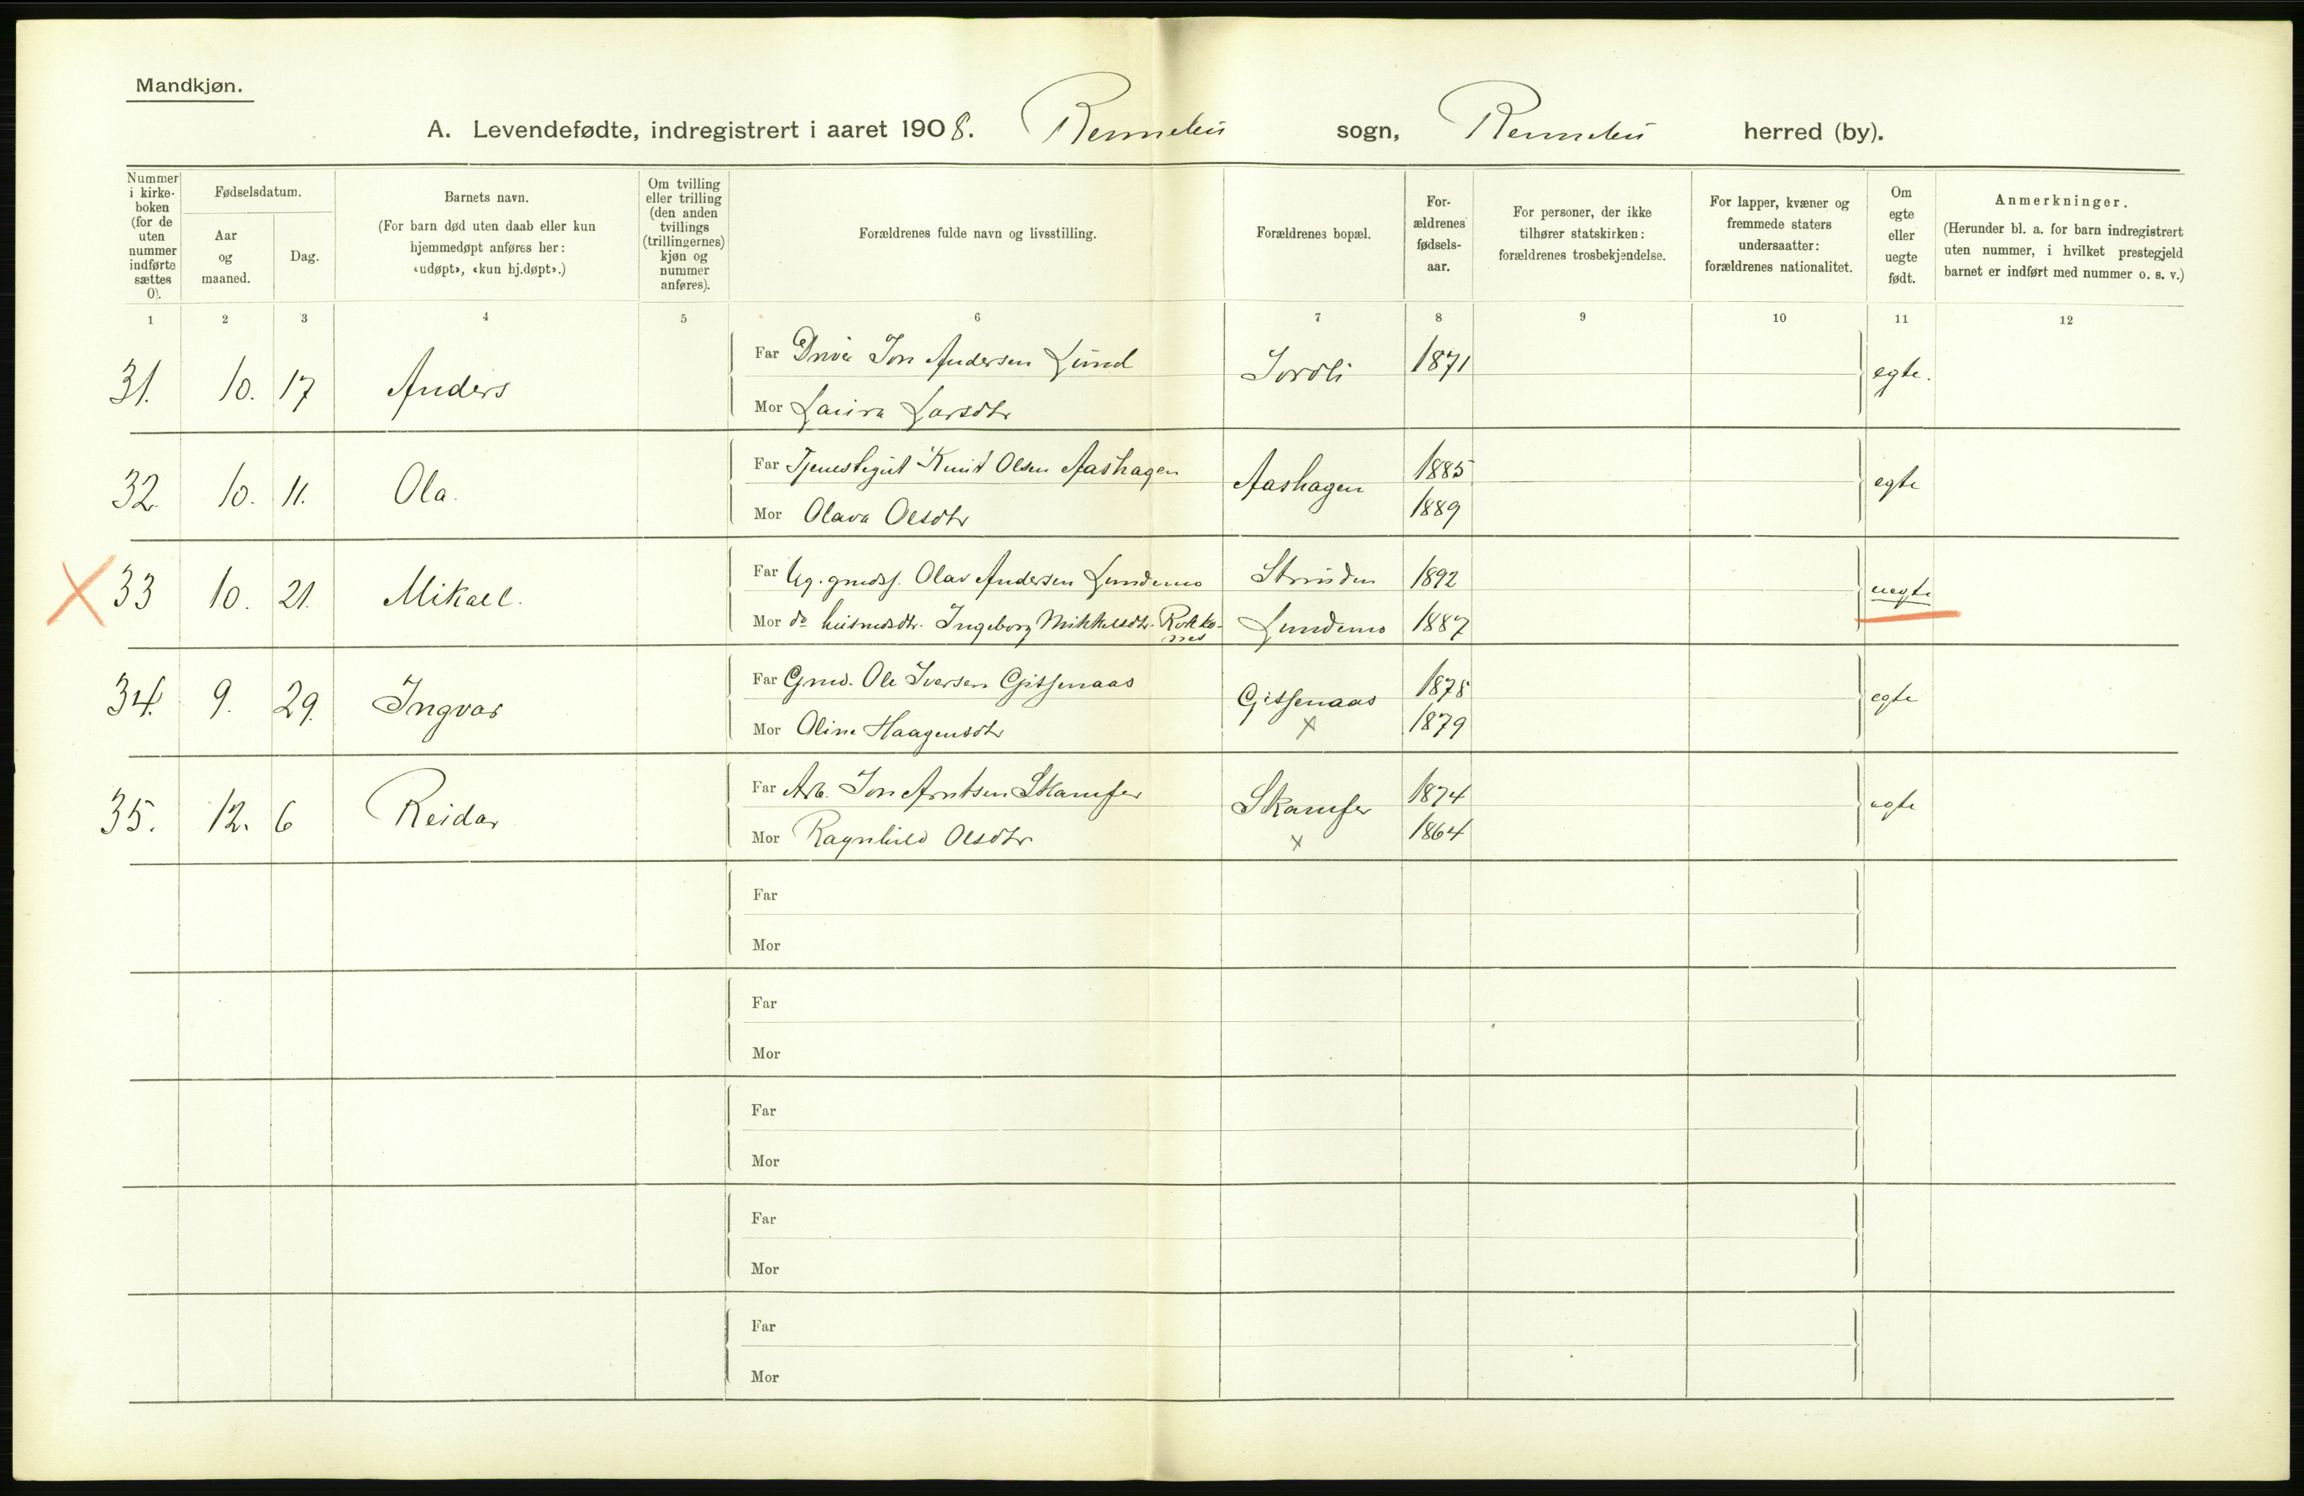 Mandkjøn.
A. Levendefødte, indregistrert i aaret 1908. Rennebu sogn, Rennebu herred (by).
Nummer i kirkeboken (for de uten nummer indførte sættes 0).
Fødselsdatum.
Aar og maaned.
Dag.
Barnets navn.
(For barn død uten daab eller kun hjemmedøpt anføres her: «udøpt», «kun hj.døpt».)
Om tvilling eller trilling (den anden tvillings (trillingernes) kjøn og nummer anføres).
Forældrenes fulde navn og livsstilling.
Forældrenes bopæl.
Forældrenes fødselsaar.
For personer, der ikke tilhører statskirken: forældrenes trosbekjendelse.
For lapper, kvæner og fremmede staters undersaatter: forældrenes nationalitet.
Om egte eller uegte født.
Anmerkninger.
(Herunder bl. a. for barn indregistrert uten nummer, i hvilket prestegjeld barnet er indført med nummer o. s. v.)
1 2 3 4 5 6 7 8 9 10 11 12
31. 10. 17 Anders Far Jon Andersen Lund Jordli 1871 egte.
Mor Laura Larsdtr
32. 10. 11. Ola. Far Tjenestegut Knut Olsen Aashagen Aashagen 1885 egte
Mor Olava Olsdtr 1889
33 10. 21. Mikael. Far Ug. gmds. Olav Andersen Lundemo Strinden 1892 uegte
Mor do husmdsdtr. Ingeborg Mikkelsdtr. Lundemo 1887
34. 9. 29. Ingvar Far Gmd. Ole Iversen Gissenaas Gissenaas 1878 egte
Mor Oline Haagensdtr x 1879
35. 12. 6 Reidar Far Arb. Jon Arntsen Skamfer Skamfer 1874 egte
Mor Ragnhild Olsdtr x 1864
Far
Mor
Far
Mor
Far
Mor
Far
Mor
Far
Mor